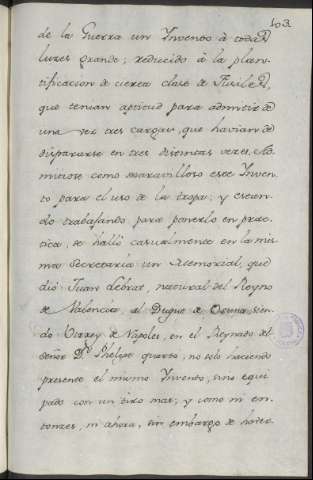 103
de la Guerra un Invento à todas
luzes grande; reducido à la plan-
tificacion de cierta clase de Fusiles,
que tenian aptitud para admitir de
una vez tres cargas, que havian de
dispararse en tres distintas vezes. Ad-
mitiose como maravilloso este Inven-
to para el uso de la tropa; y estan-
do trabajando para ponerlo en prac-
tica, se halló casualmente en la mis-
ma Secretaria un Memorial, que
dió Juan Lebrat, natural del Reyno
de Valencia, al Duque de Osuna, sien-
do Virrey de Napoles, en el Reynado del
Señor Dn. Phelipe quarto, no solo haciendo
presente el mismo Invento, sino equi-
pado con un tiro mas; y como ni en-
tonzes, ni ahora, sin embargo de haver